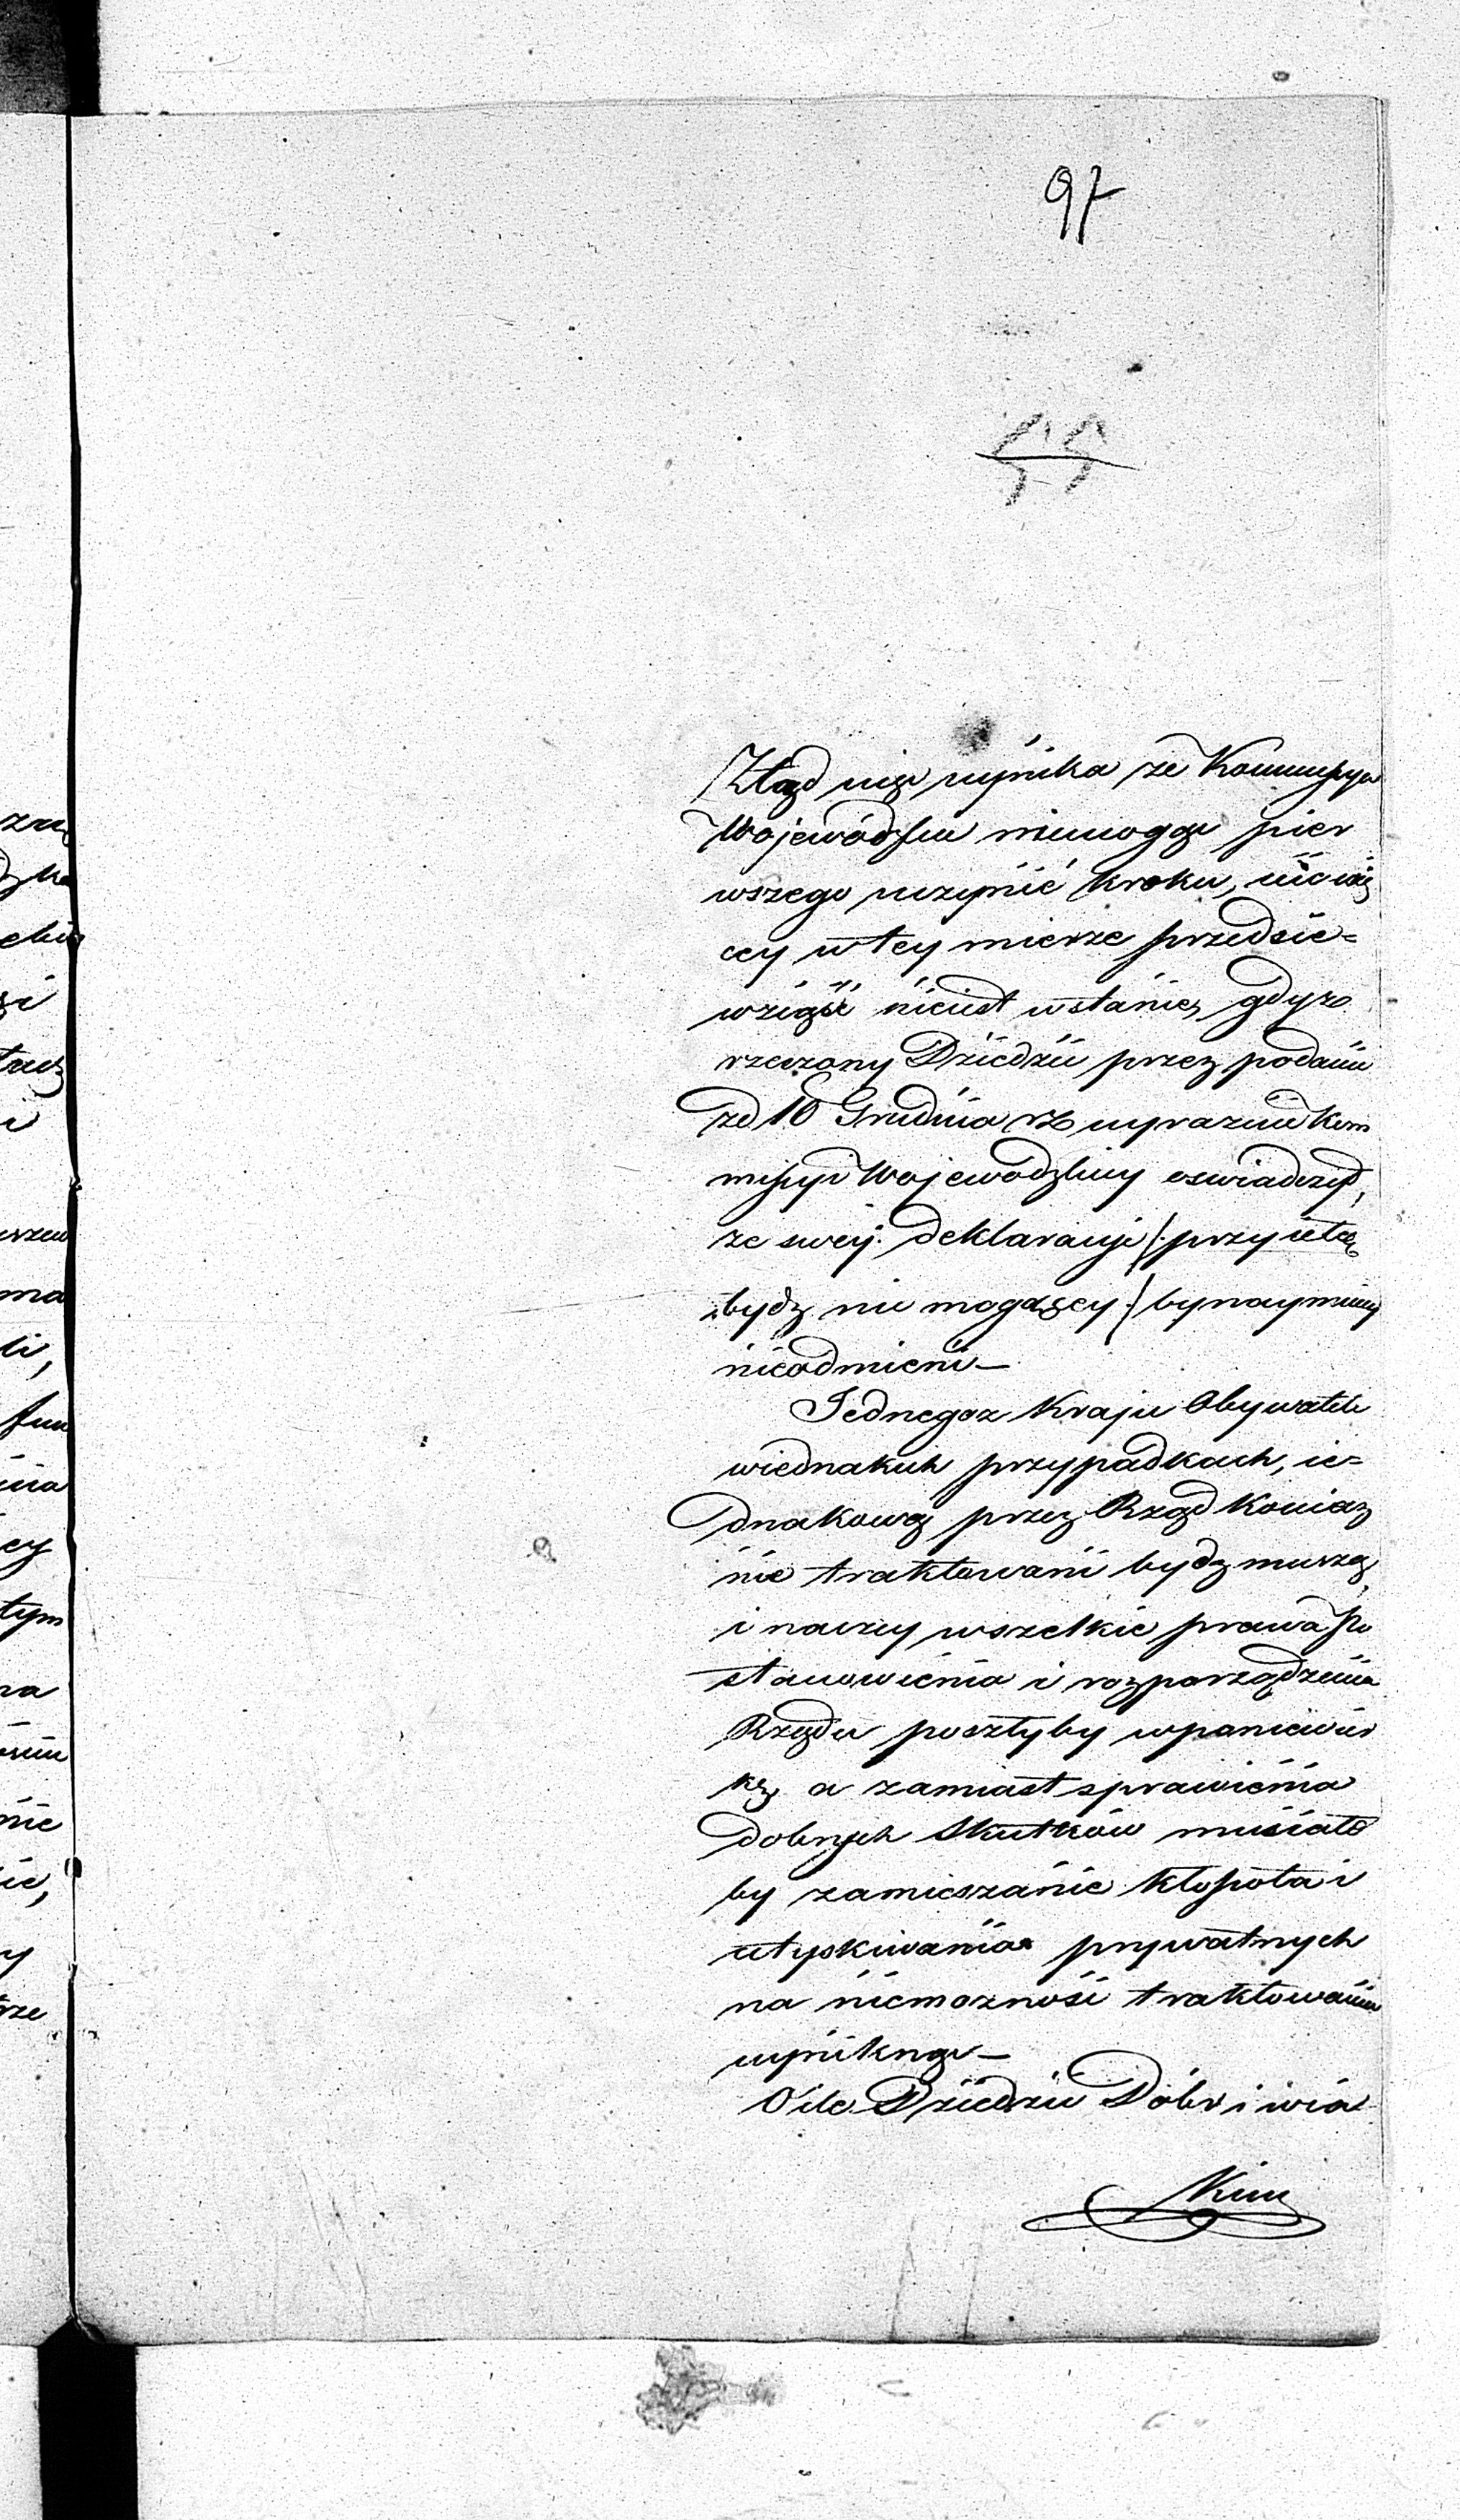 97
55
Ztąd więc wynika że Kommissya
Wojewódzka niemogąc pier
wszego uczynić kroku, nic wię
cey w tey mierze przedsie=
wziąść nieiest wstanie, gdyż
rzeczony Dziedzic przez podanie
zd 10 Grudnia rb wyraznie Kom
missyi Wojewodzkiey oswiadczył,
ze swey deklaracyi /: przyiętą
bydz nie mogącey :/ bynaymniey
nieodmieni —
Jednegoz Kraju Obywatele
wiednakich przypadkach, ie=
dnakowo przez Rząd koniecz
nie traktowani bydz muszą,
inaczey wszelkie prawa Po
stanowienia i rozporządzenia
Rządu poszłyby wponiewier
kę a zamiast sprawienia
dobrych Skutków musiało
by zamieszanie kłopota i
utyskiwania prywatnych
na niemoznosć traktowania
wyniknąć —
O ile Dziedzic Dóbr i wia